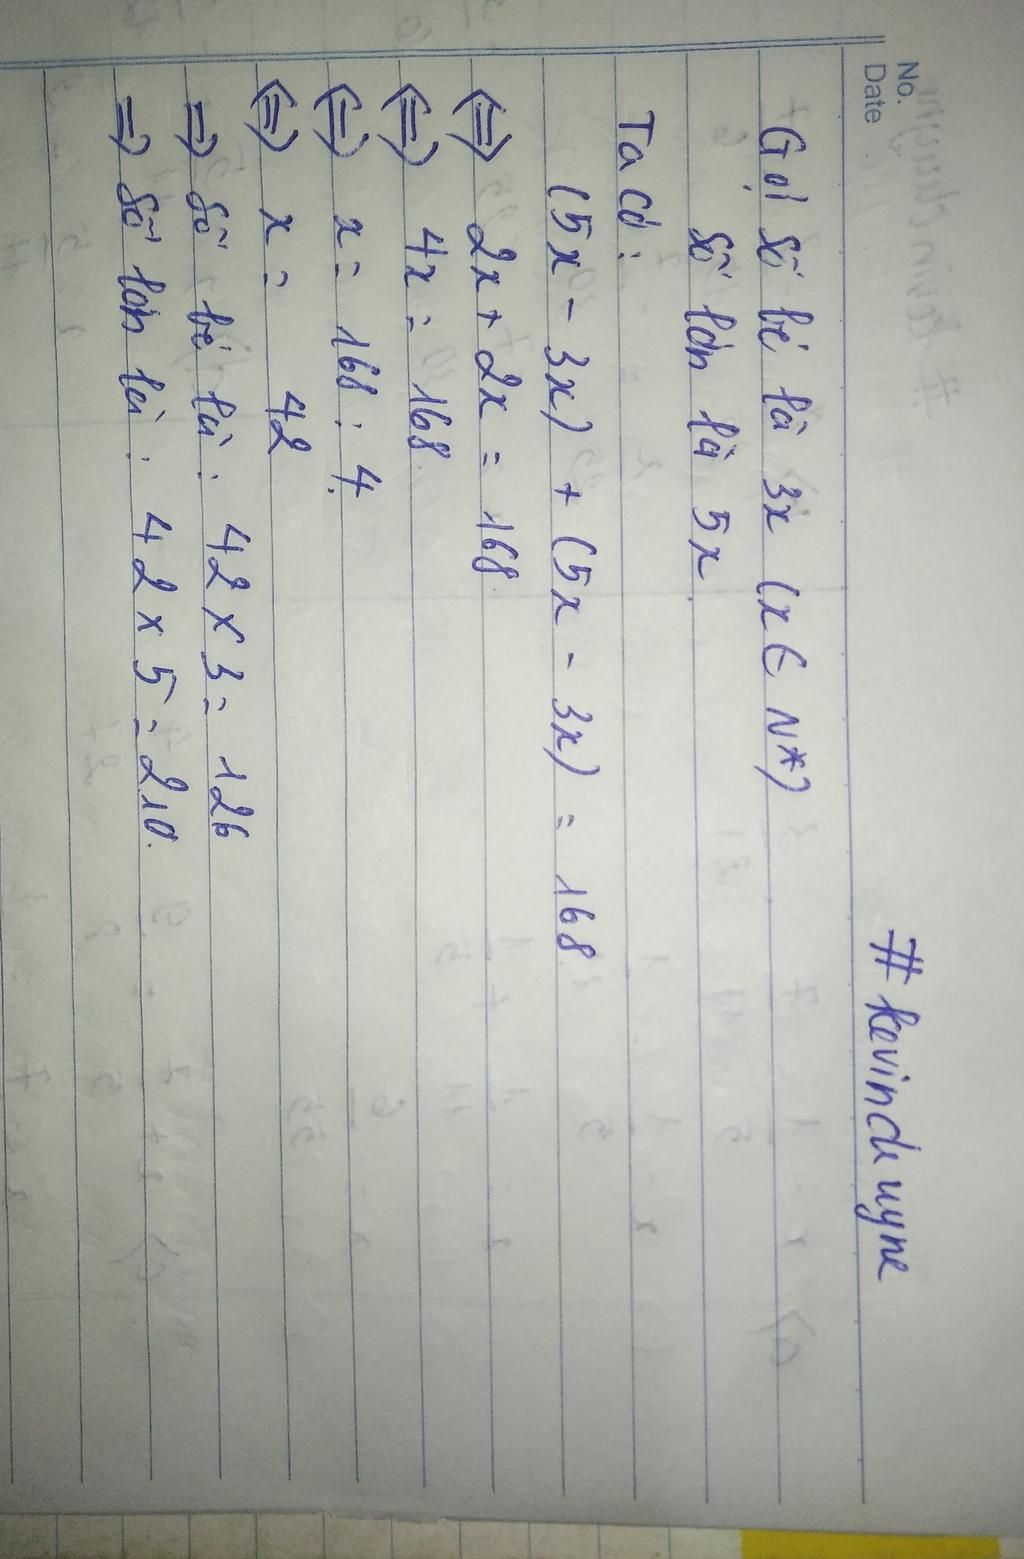 No.
Date
# kevinduyne
Gọi số bé là 3x (x ∈ N*)
số lớn là 5x
Ta có:
(5x - 3x) + (5x - 3x) = 168
⇔ 2x + 2x = 168
⇔ 4x = 168
⇔ x = 168 : 4
⇔ x = 42
⇒ Số bé là : 42 x 3 = 126
⇒ Số lớn là : 42 x 5 = 210.